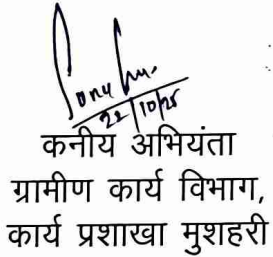 Sonu Ku.
22/10/25
कनीय अभियंता
ग्रामीण कार्य विभाग,
कार्य प्रशाखा मुशहरी